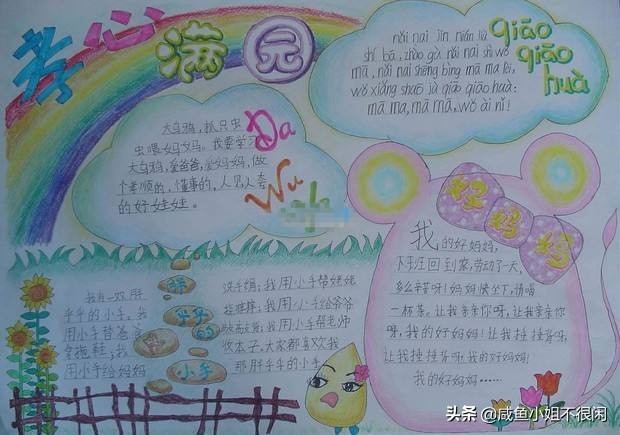 孝心满园
大乌鸦，抓只虫
虫喂妈妈。我要学习
大乌鸦，爱爸爸，爱妈妈，做
个孝顺的，懂事的，人见人夸
的好娃娃。
Da
Wu
nǎi nai jīn nián liù
shí bā, zhào gù nǎi nai shì wǒ
mā, nǎi nai shēng bìng mā ma lèi,
wǒ xiǎng shuō jù qiāo qiāo huà:
mā ma, mā mā, wǒ ài nǐ!
qiāo
qiāo
huà
胖
乎乎
的
小手
我有一双胖
乎乎的小手。我
用小手替爸爸
拿拖鞋；我
用小手给妈妈
洗手绢；我用小手帮姥姥
我用小手给爷爷
我用小手帮老师
收本子。大家都喜欢我
那胖乎乎的小手。
好妈妈
我的好妈妈，
下班回到家，劳动了一天，
多么辛苦呀！妈妈快坐下，请喝
一杯茶。让我亲亲你呀，让我亲亲你
呀，我的好妈妈！让我捶捶背吗，
让我捶捶背呀！我的好妈妈！
我的好妈妈……
头条 @咸鱼小姐不很闲